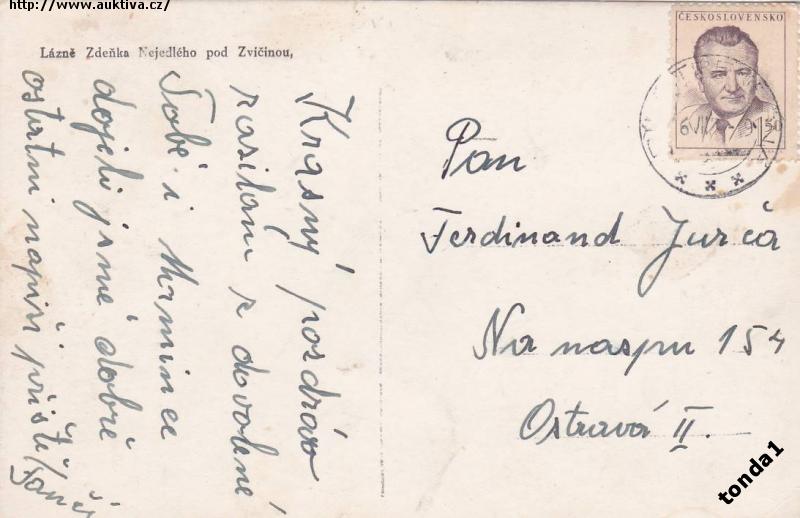 http://www.auktiva.cz/
Lázně Zdeňka Nejedlého pod Zvičinou,
Krásný pozdrav
zasílám z dovolené
Tobě i Mrmince
dojeli jsme dobře
ostatní napíši příště
ČESKOSLOVENSKO
1.50
Pan
Ferdinand Jurča
Na naspu 154
Ostravá II.
tonda1